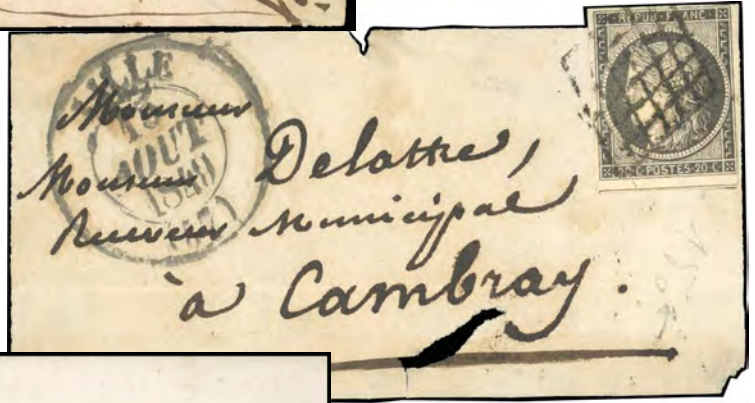 REPUB. FRANC.
20 C POSTES 20 C
LILLE
AOUT
1849
(57)
Monsieur
Monsieur Delattre,
Receveur Municipal
à Cambray.